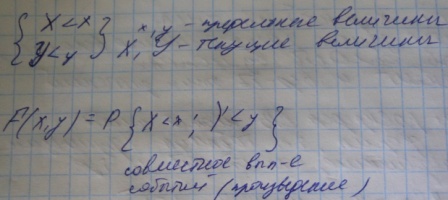 { X < x x, y - предельные величины
Y < y } X, Y - текущие величины
F(x,y) = P { X < x ; Y < y }
совместное вып-е
событий (произведение)